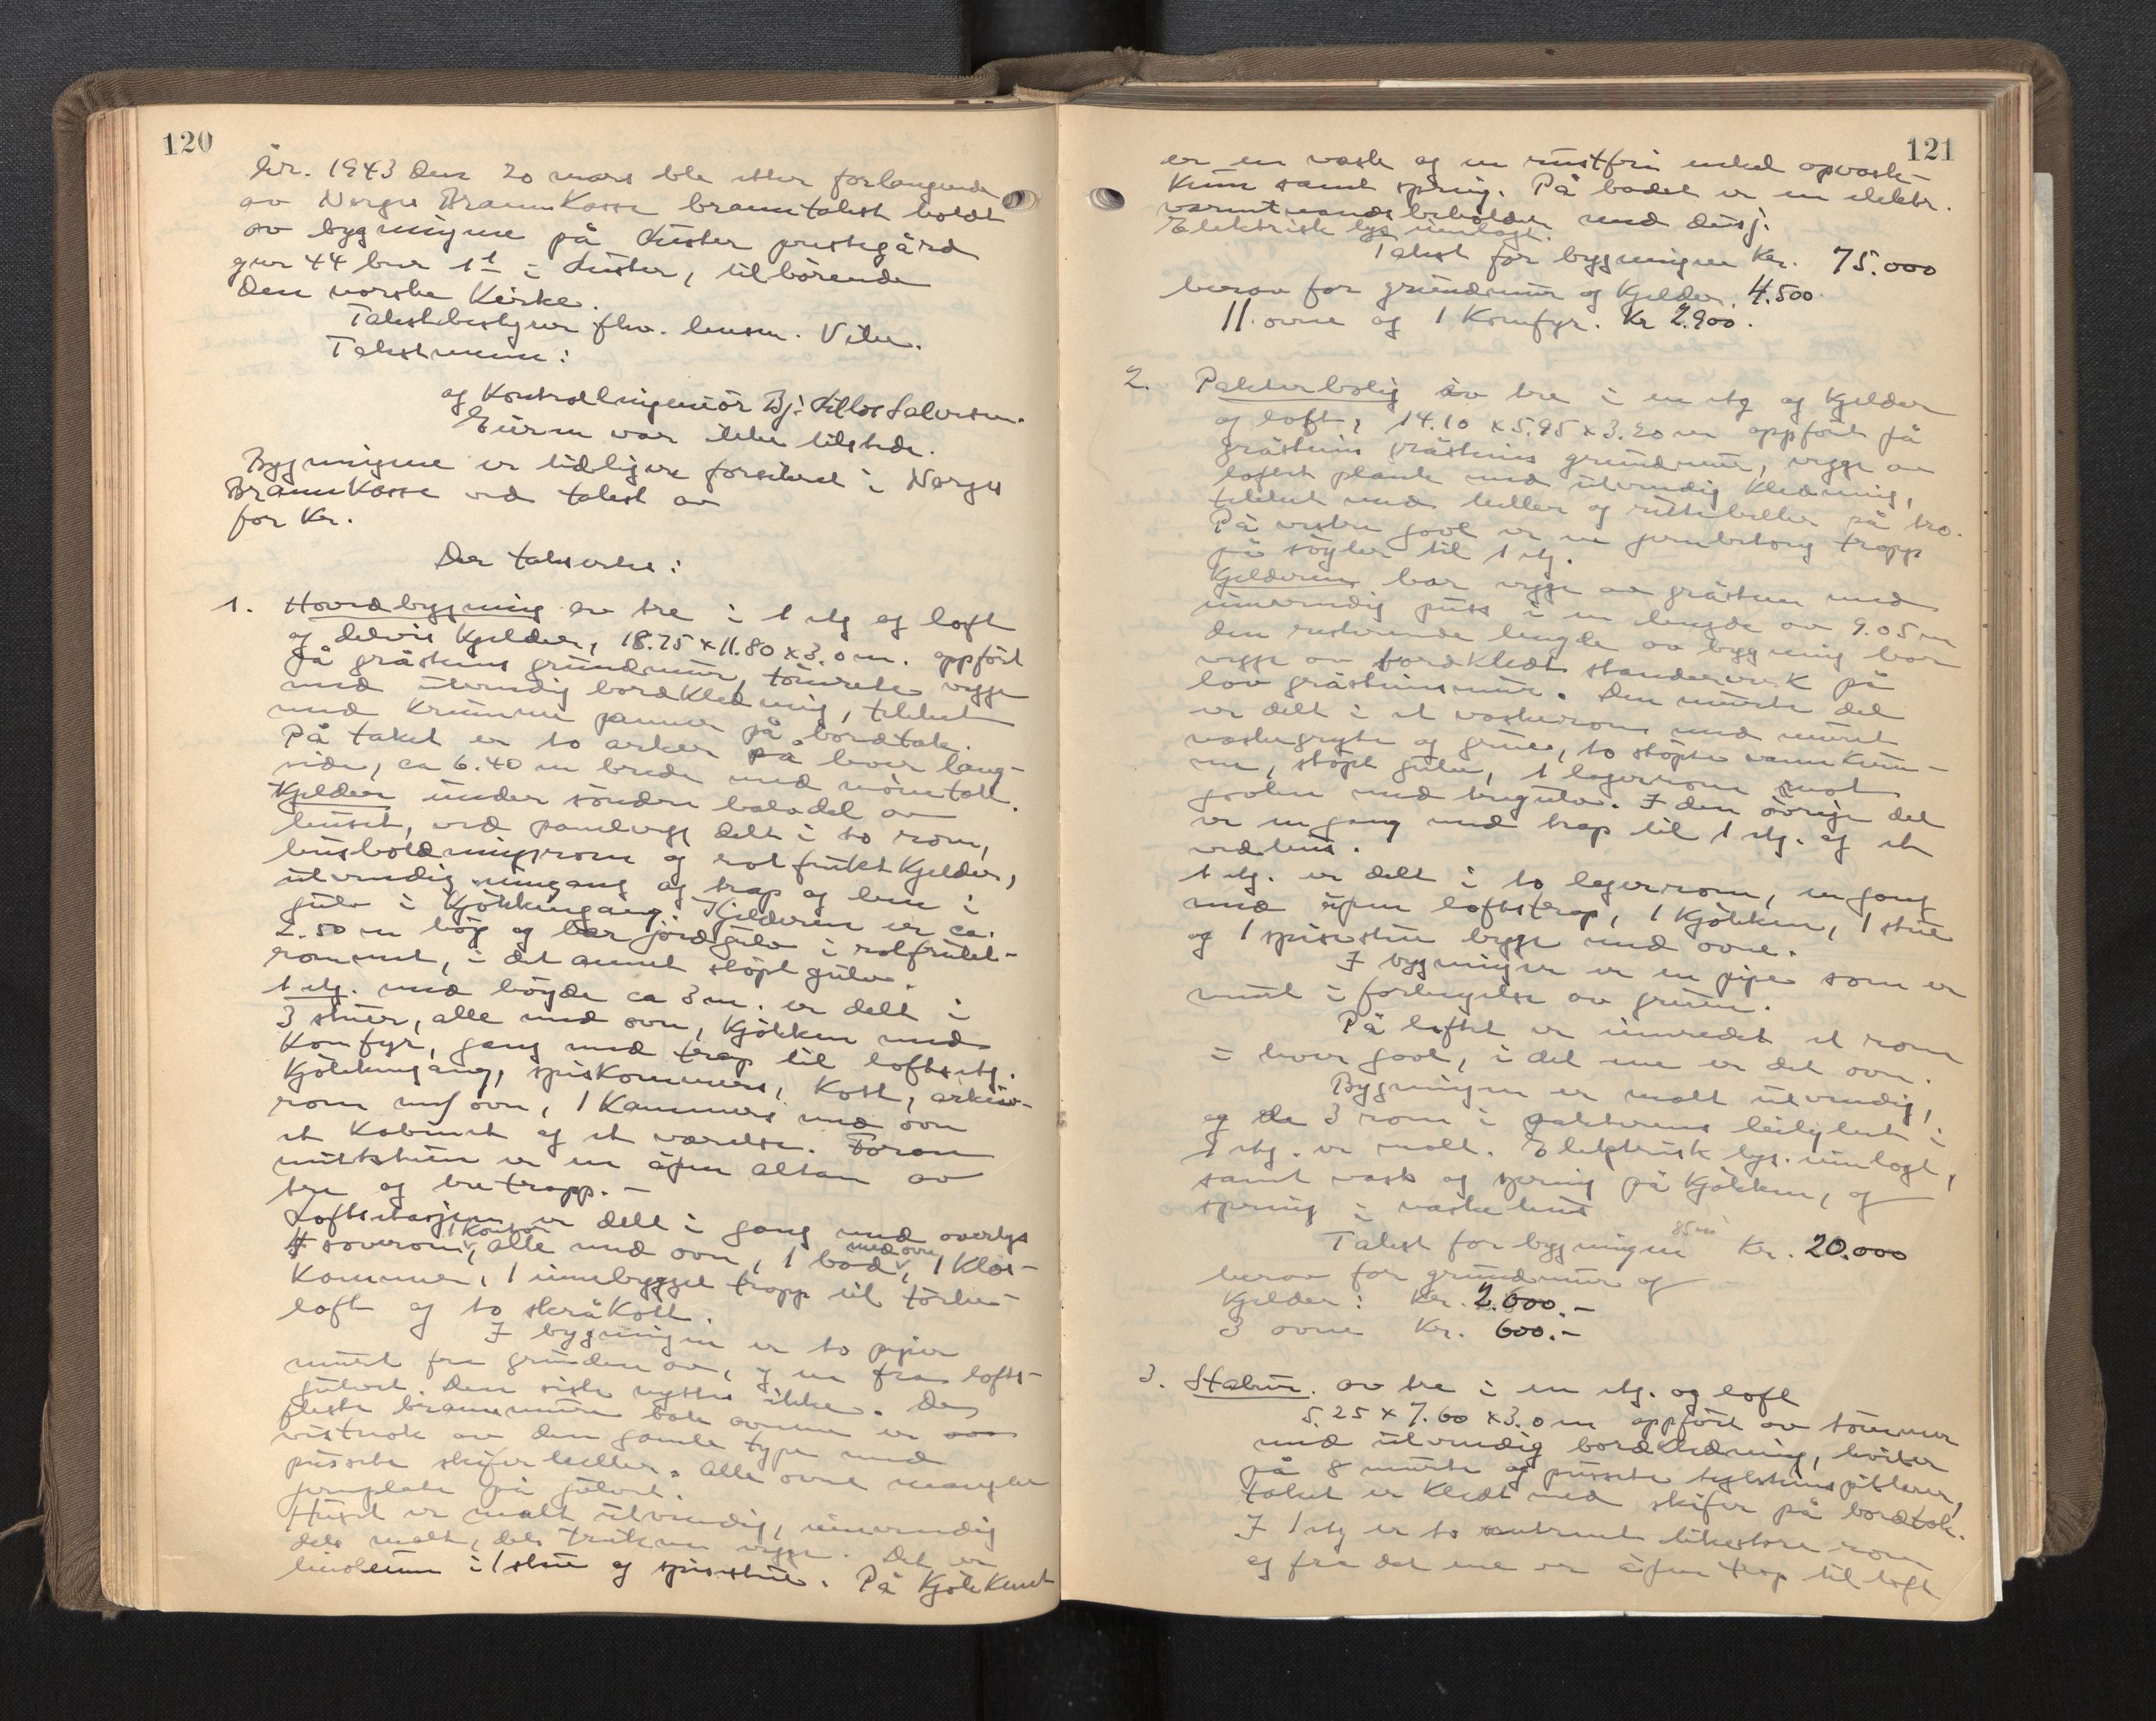 120
År. 1943 den 20 mars ble etter forlangende
av Norges Brannkasse branntakst holdt
av bygningene på Luster prestegård
gnr 44 bnr 1 i Luster, tilhörende
den norske Kirke.
Takstbestyrer fhv. lensm.
Takstmenn:
og Kontrollingeniör Bj.
Eieren var ikke tilstede.
Bygningene er tidligere forsikret i Norges
Brannkasse ved takst av
for Kr.
Der takseres:
1. Hovedbygning av tre i 1 etg og loft
og delvis Kjelder, 18.75 x 11.80 x 3.0 m. oppfört
på gråsteins grunnmur, tömrete vegge
med utvendig bordkledning, tekket
med krumme panner på bordtak.
På taket er to arker på hver lang-
side, ca 6.40 m brede med mönetak.
Kjelder under söndre halvdel av
huset, ved panelvegg delt i to rom,
husholdningsrom og rotfruktkjelder,
utvendig inngang og trap og lem i
gulv i Kjökkengang. Kjelderen er ca.
2.50 m höy og har jordgulv i rotfrukt-
rommet, i det annet stöpt gulv.
1 etg. med höyde ca 3 m. er delt i
3 stuer, alle med ovn, Kjökken med
Komfyr, gang med trap til loftsetg.
Kjökkengang, spiskammers, Kott, arkiv-
rom m/ ovn, 1 Kammers med ovn
et Kabinet og et værelse. Foran
midtstuen er en åpen altan av
tre og tretrapp. -
Loftsetasjen er delt i gang med overlys
4 soverom, 1 kontor, alle med ovn, 1 bad med ovn, 1 Kles-
Kammer, 1 innebygget trapp til törke-
loft og to skråkott.
I bygningen er to piper
murt fra grunden av, og en fra lofts-
gulvet. Den siste nyttes ikke. De
fleste brannmurer bak ovnene er
vistnok av den gamle type med
pussete skiferheller. Alle ovne mangler
jernplate på gulvet.
Huset er malt utvendig, innvendig
dels malt, dels trukne vegge. Det er
linoleum i 1 stue og spisestue. På Kjökkenet
121
er en vask og en rustfri enkel opvask-
Kum samt spring. På badet er en elektr.
varmtvandsbeholder med dusj.
Elektrisk lys innlagt.
Takst for bygningen Kr. 75.000
herav for grundmur og Kjelder. 4.500.
11 ovne og 1 Komfyr. Kr 2.900.
2. Pakterbolig av tre i en etg og Kjelder
og loft, 14.10 x 5.95 x 3.20 m oppfört på
gråsteins gråsteins grundmur, vegge av
loftet plank med utvendig Kledning,
tekket med heller og ruteheller på tro.
På vestre gavl er en jernbetong trapp
på söyler til 1 etg.
Kjelderen har vegge av gråsten med
innvendig puss i en lengde av 9.05 m
den resterende lengde av bygning har
vegge av bordkledt standerverk på
lav gråsteinsmur. Den murte del
er delt i et vaskerom med murt
vaskegryte og grue, to stöpte vannkum-
mer, stöpt gulv, 1 lagerrom mot
gavlen med tregulv. I den övrige del
er en gang med trap til 1 etg. og et
vedhus.
1 etg. er delt i to lagerrom, en gang
med åpen loftstrap, 1 Kjökken, 1 stue
og 1 spisestue begge med ovne.
I bygningen er en pipe som er
murt i forlengelse av gruen.
På loftet er innredet et rom
i hver gavl, i det ene er det ovn.
Bygningen er malt utvendig,
og de 3 rom i pakterens leilighet i
1 etg. er malt. Elektrisk lys innlagt,
samt vask og spring på Kjökken, og
spring i vaskehus
85 m²
Takst for bygningen Kr. 20.000
herav for grundmur og
Kjelder: Kr. 2.000.-
3 ovne Kr. 600.-
3. Stabur av tre i en etg. og loft
5.25 x 7.60 x 3.0 m oppfört av tömmer
med utvendig bordkledning, hviler
på 8 murte og pussete teglsteinspillarer,
taket er kledt med skifer på bordtak.
I 1 etg er to omtrent likestore rom
og fra det ene er åpen trap til loft